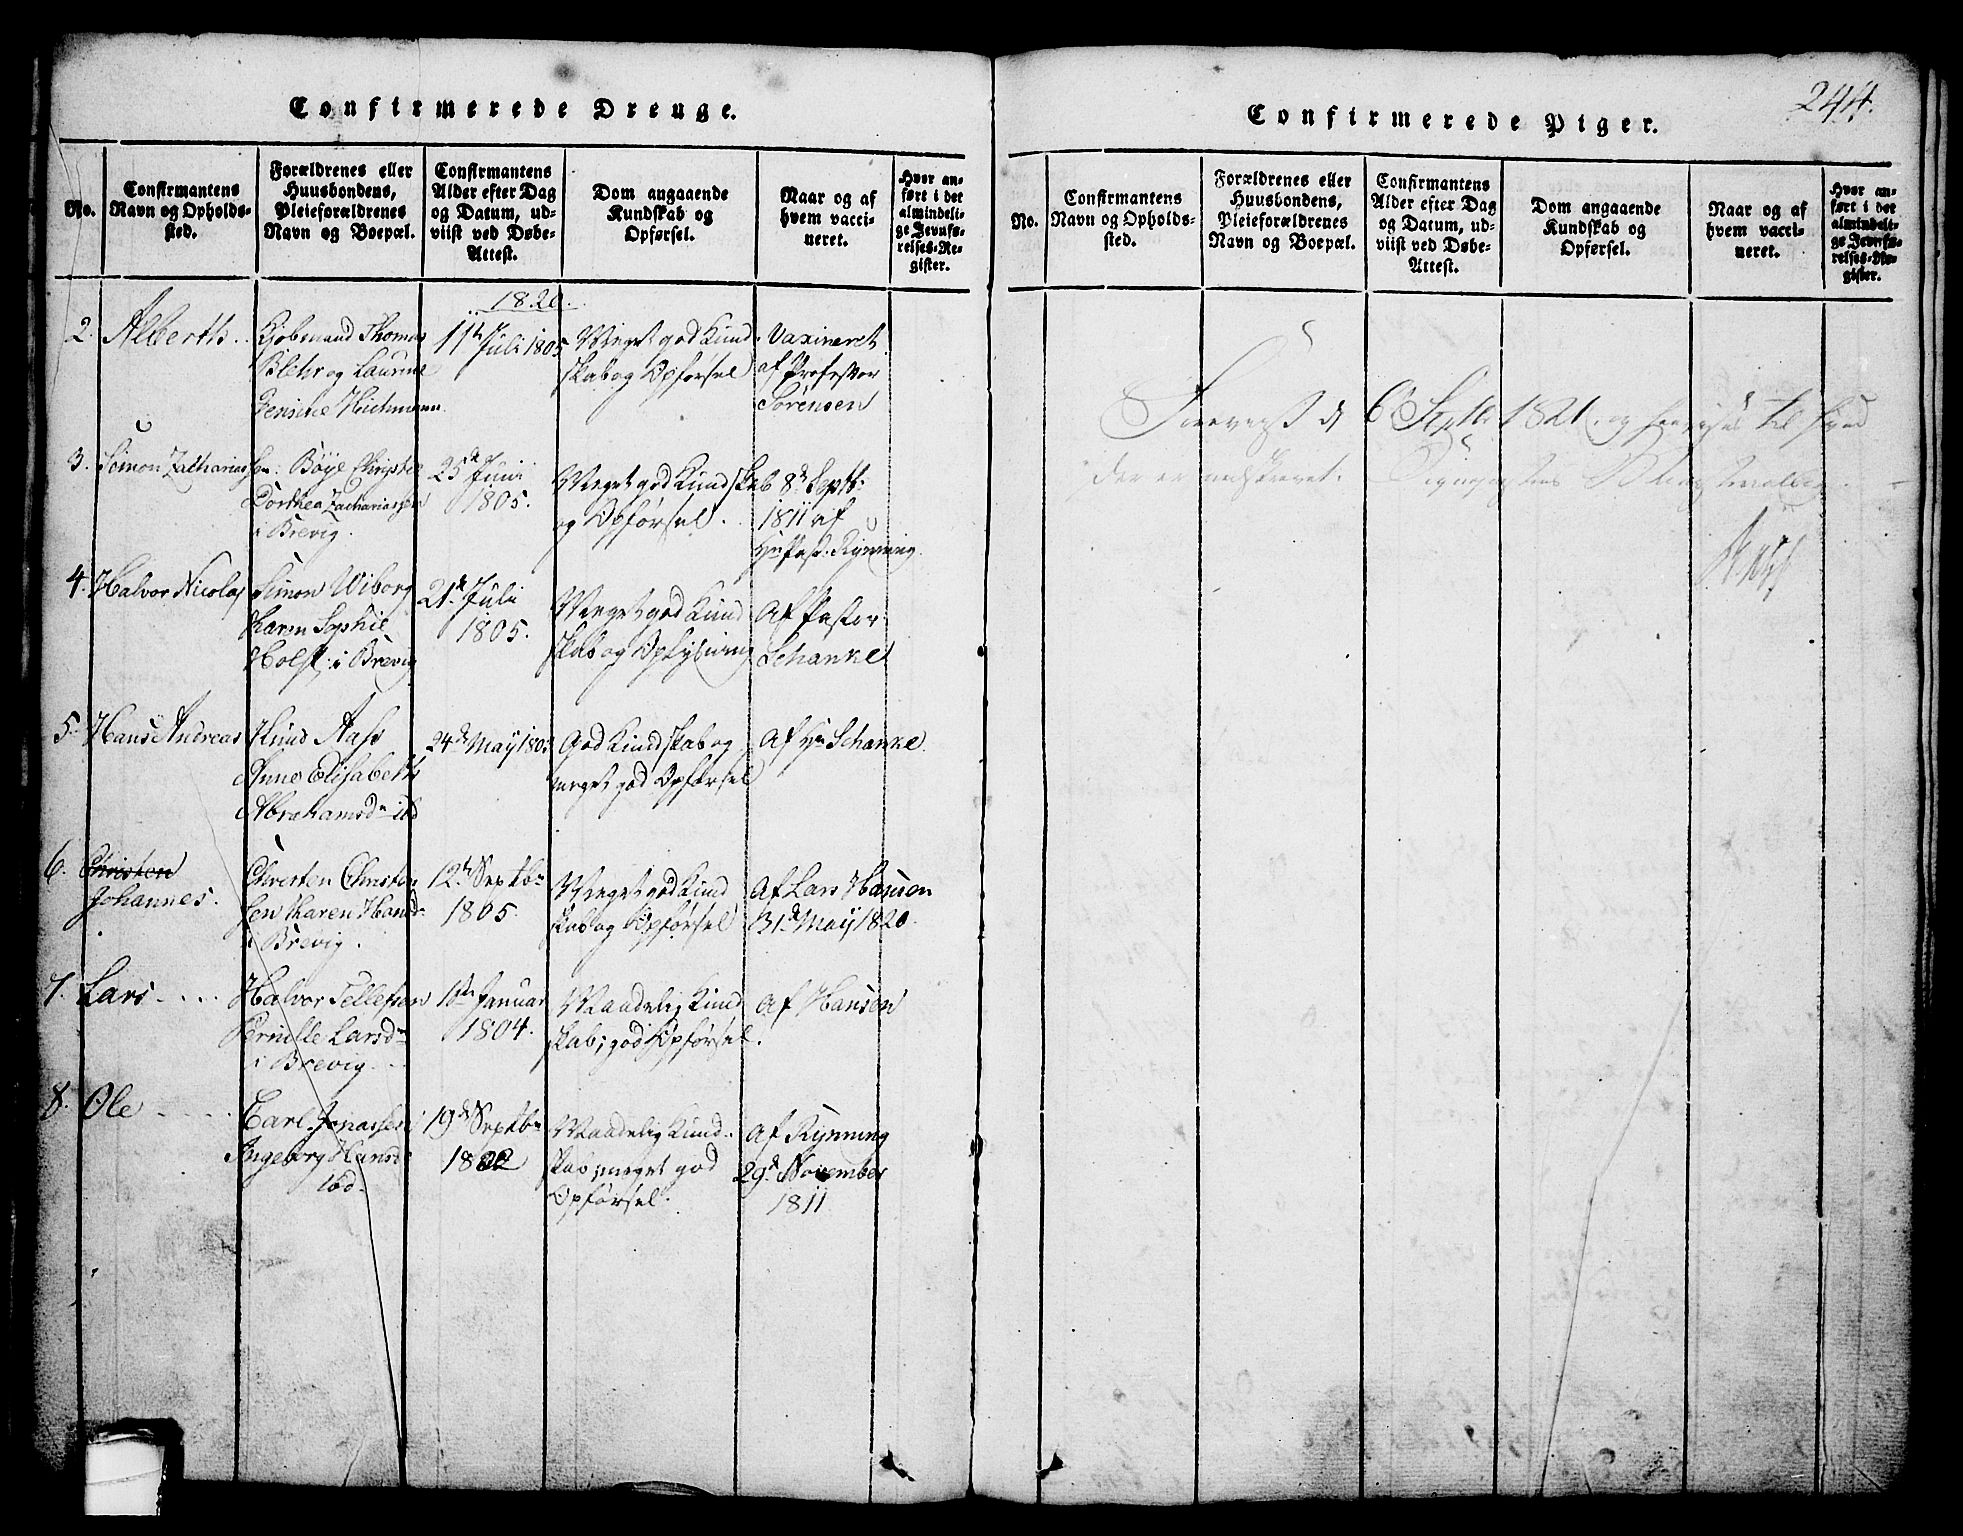 244.
Confirmerede Drenge.
No.
Confirmantens
Navn og Opholds-
sted.
Forældrenes eller
Huusbondens,
Pleieforældrenes
Navn og Boepæl.
Confirmantens
Alder efter Dag
og Datum, ud-
viist ved Døbe-
Attest.
Dom angaaende
Kundskab og
Opførsel.
Naar og af
hvem vacci-
neret.
Hvor an-
ført i det
almindeli-
ge Jevnfø-
relses-Re-
gister.
1820.
2. Alberth
Kjøbmand Thomas
Blehr og Laurine
11te Juli 1805
Meget god Kund
skab og Opførsel
Vaxineret
af Professor
Sørensen
3. Simon Zachariassen
Böye Christie
Dorthea Zachariassen
i Brevig.
25de Juni
1805.
Meget god Kundskab
og Opførsel.
8de Septb:
1811 af
Hr Past. Rynning.
4. Halvor Nicolaj
Simon Wiborg
Karen Sophie
Holst i Brevig
21de Juli
1805.
Meget god Kund
skab og Opførsel
Af Pastor
Schanke
5. Hans Andreas
Knud Aass
Anne Elisabeth
Abrahamsdn ibd
24de Maij 1805
God Kundskab og
meget god Opførsel
Af Hr Schanke.
6. Christen
Johannes.
Christen Christen
sen Karen Hansd.
i Brevig.
12te Septbr
1805.
Meget god Kund
skab og Opførsel
Af Lars Hansen
31de Maij 1820.
7. Lars
Halvor Tellefsen
Pernille Larsdn
i Brevig
Januar
1804.
Maadelig Kund
skab; god Opførsel.
Af Hansen
8. Ole
Carl Jonassen
Ingeborg Hansd.
ibd.
19de Septbr
1802
Maadelig Kund-
skab; meget god
Opførsel.
Af Rynning
29de November
1811
Confirmerede Piger.
No.
Confirmantens
Navn og Opholds-
sted.
Forældrenes eller
Huusbondens,
Pleieforældrenes
Navn og Boepæl.
Confirmantens
Alder efter Dag
og Datum, ud-
viist ved Døbe-
Attest.
Dom angaaende
Kundskab og
Opførsel.
Naar og af
hvem vacci-
neret.
Hvor an-
ført i det
almindeli-
ge Jevnfø-
relses-Re-
gister.
6 Septb. 1821. og til hvad
der er